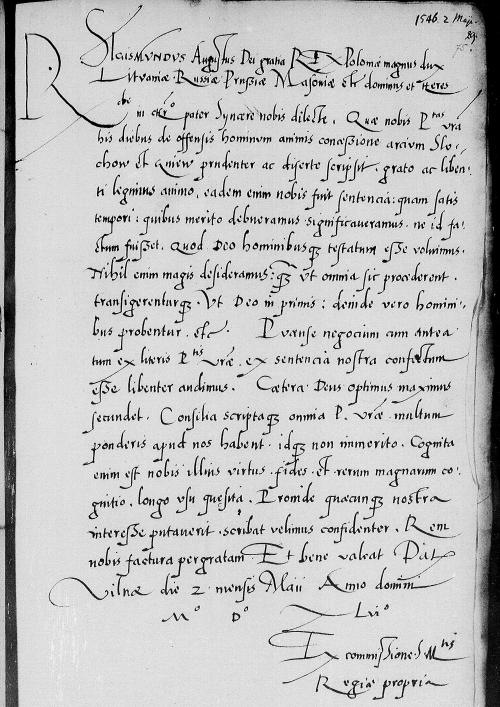 1546 2 Maji
89
75
SIGISMVNDVS Augustus Dei gratia REX Poloniæ magnus dux
Lituaniæ Russiæ Prussiæ Masoniæ etc dominus et heres
Rde in Chro pater Syncere nobis dilecte. Quæ nobis P tas vra
his diebus de offensis hominum animis concessione arcium Slo-
chow et Gniew prudenter ac diserte scripsit, grato ac liben-
ti legimus animo, eadem enim nobis fuit sentencia: quam satis
tempori: quibus merito debueramus significaueramus. ne id fa-
ctum fuisset. Quod Deo hominibusq3 testatum esse volumus.
Nihil enim magis desideramus: q3 vt omnia sic procederent.
transigerenturq3. Vt Deo in primis: deinde vero homini-
bus probentur. etc. Pucense negocium cum antea
tum ex literis P. tis vræ. ex sentencia nostra confectum
esse libenter audimus. Cætera Deus optimus maximus
secundet. Consilia scriptaq3 omnia P. vræ. multum
ponderis apud nos habent. idq3 non immerito. Cognita
enim est nobis illius virtus. fides. et rerum magnarum co-
gnitio. longo vsu quesita. Proinde quæcunq3 nostra
interesse putauerit. scribat velimus confidenter. Rem
nobis factura pergratam. Et bene valeat Dat
Vilnæ die 2 mensis Maii Anno domini
M.º D.º Lviº
Ex commissione S. M tis
Regiæ propria